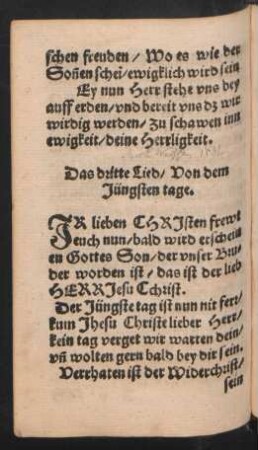 schen freuden / Wo es wie der
Soñen schei / ewigklich wird sein
Ey nun Herr stehe vns bey
auff erden / vnd bereit vns dz wir
wirdig werden / zu schawen inn
ewigkeit / deine Herrligkeit.
Das dritte Lied / Von dem
Jüngsten tage.
IR lieben CHRIsten frewt
euch nun / bald wird erschein
en Gottes Son / der vnser Bru
der worden ist / das ist der lieb
HERR Jesu Cchrist.
Der Jüngste tag ist nun nit fer /
kum Jhesu Christe lieber Herr /
kein tag verget wir warten dein /
vñ wolten gern bald bey dir sein.
Verrhaten ist der Widerchrist /
sein